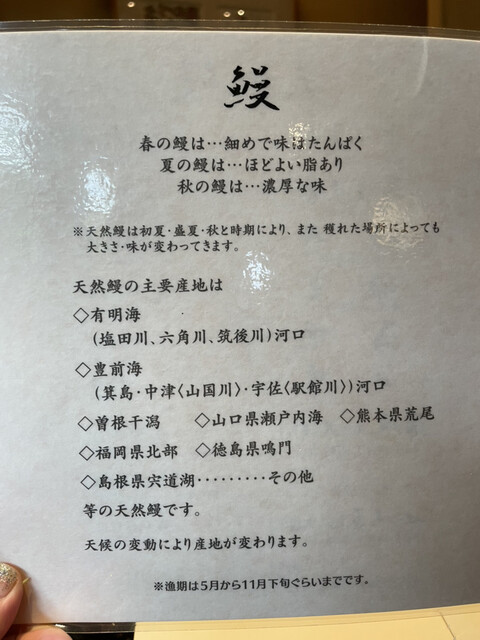 鰻
春の鰻は…細めで味はたんぱく
夏の鰻は…ほどよい脂あり
秋の鰻は…濃厚な味
※天然鰻は初夏・盛夏・秋と時期により、また 穫れた場所によっても
大きさ・味が変わってきます。
天然鰻の主要産地は
◇有明海
(塩田川、六角川、筑後川)河口
◇豊前海
(箕島・中津〈山国川〉・宇佐〈駅館川〉)河口
◇曽根干潟 ◇山口県瀬戸内海 ◇熊本県荒尾
◇福岡県北部 ◇徳島県鳴門
◇島根県宍道湖………その他
等の天然鰻です。
天候の変動により産地が変わります。
※漁期は5月から11月下旬ぐらいまでです。